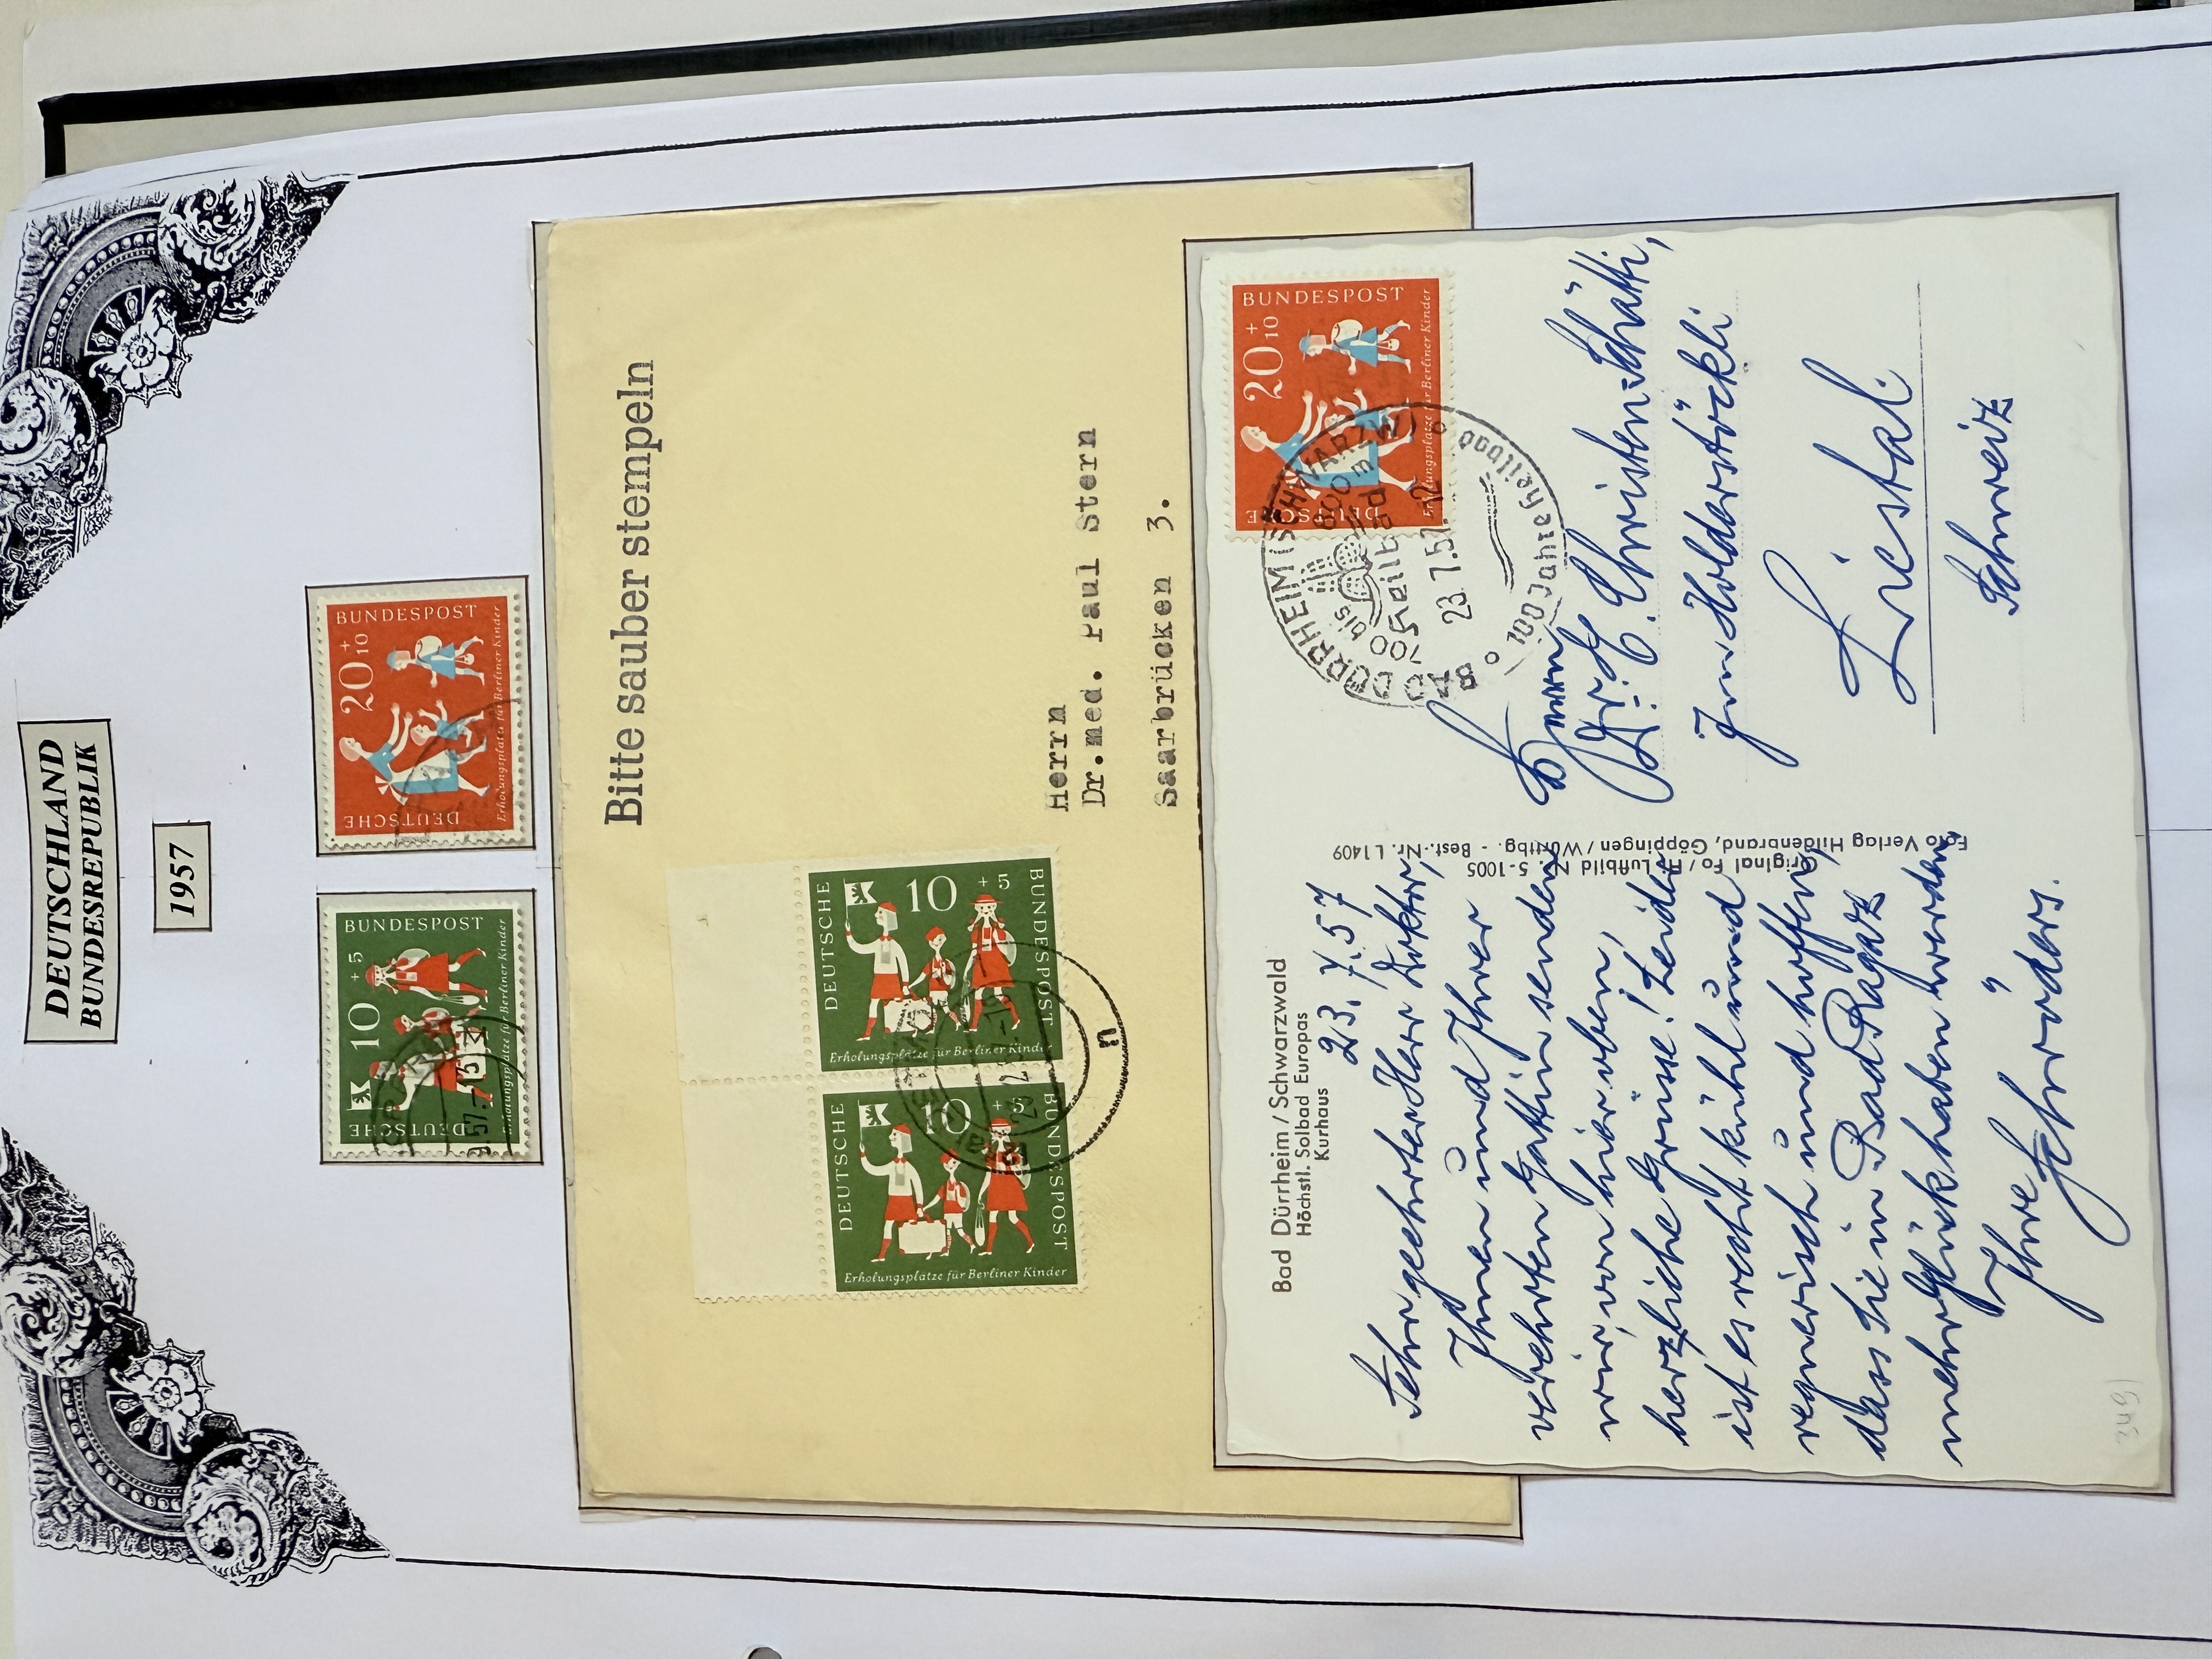 DEUTSCHLAND
BUNDESREPUBLIK
1957
DEUTSCHE
BUNDESPOST
10 + 5
Erholungsplätze für Berliner Kinder
57.-
DEUTSCHE
BUNDESPOST
20 + 10
Erholungsplätze für Berliner Kinder
Bitte sauber stempeln
DEUTSCHE
10
+ 5
BUNDESPOST
Erholungsplätze für Berliner Kinder
DEUTSCHE
10
+ 5
BUNDESPOST
Erholungsplätze für Berliner Kinder
n
Herrn
Dr.med. Paul Stern
Saarbrücken 3.
Bad Dürrheim / Schwarzwald
Höchstl. Solbad Europas
Kurhaus
23. 7. 57
Sehr geehrter Herr Direktor,
Ihnen und Ihrer
verehrten Gattin senden
wir, von hier oben,
herzliche Grüsse! Leider
ist es recht kühl und
regnerisch und hoffen,
dass Sie in Bad Ragaz
mehr Glück haben werden
Ihre Schröders.
Original Fo / Fl Luftbild Nr. 5-1005
Foto Verlag Hildenbrand, Göppingen / Württbg. - Best.-Nr. L 1409
DEUTSCHE
BUNDESPOST
20 + 10
Erholungsplätze für Berliner Kinder
BAD DÜRRHEIM (SCHWARZW)
700 bis 800 m
Heilbad
23.7.57.-12
100 Jahre Heilbad
Herrn
Dr. C. Christen-Schätti,
Liestal.
Schweiz
349